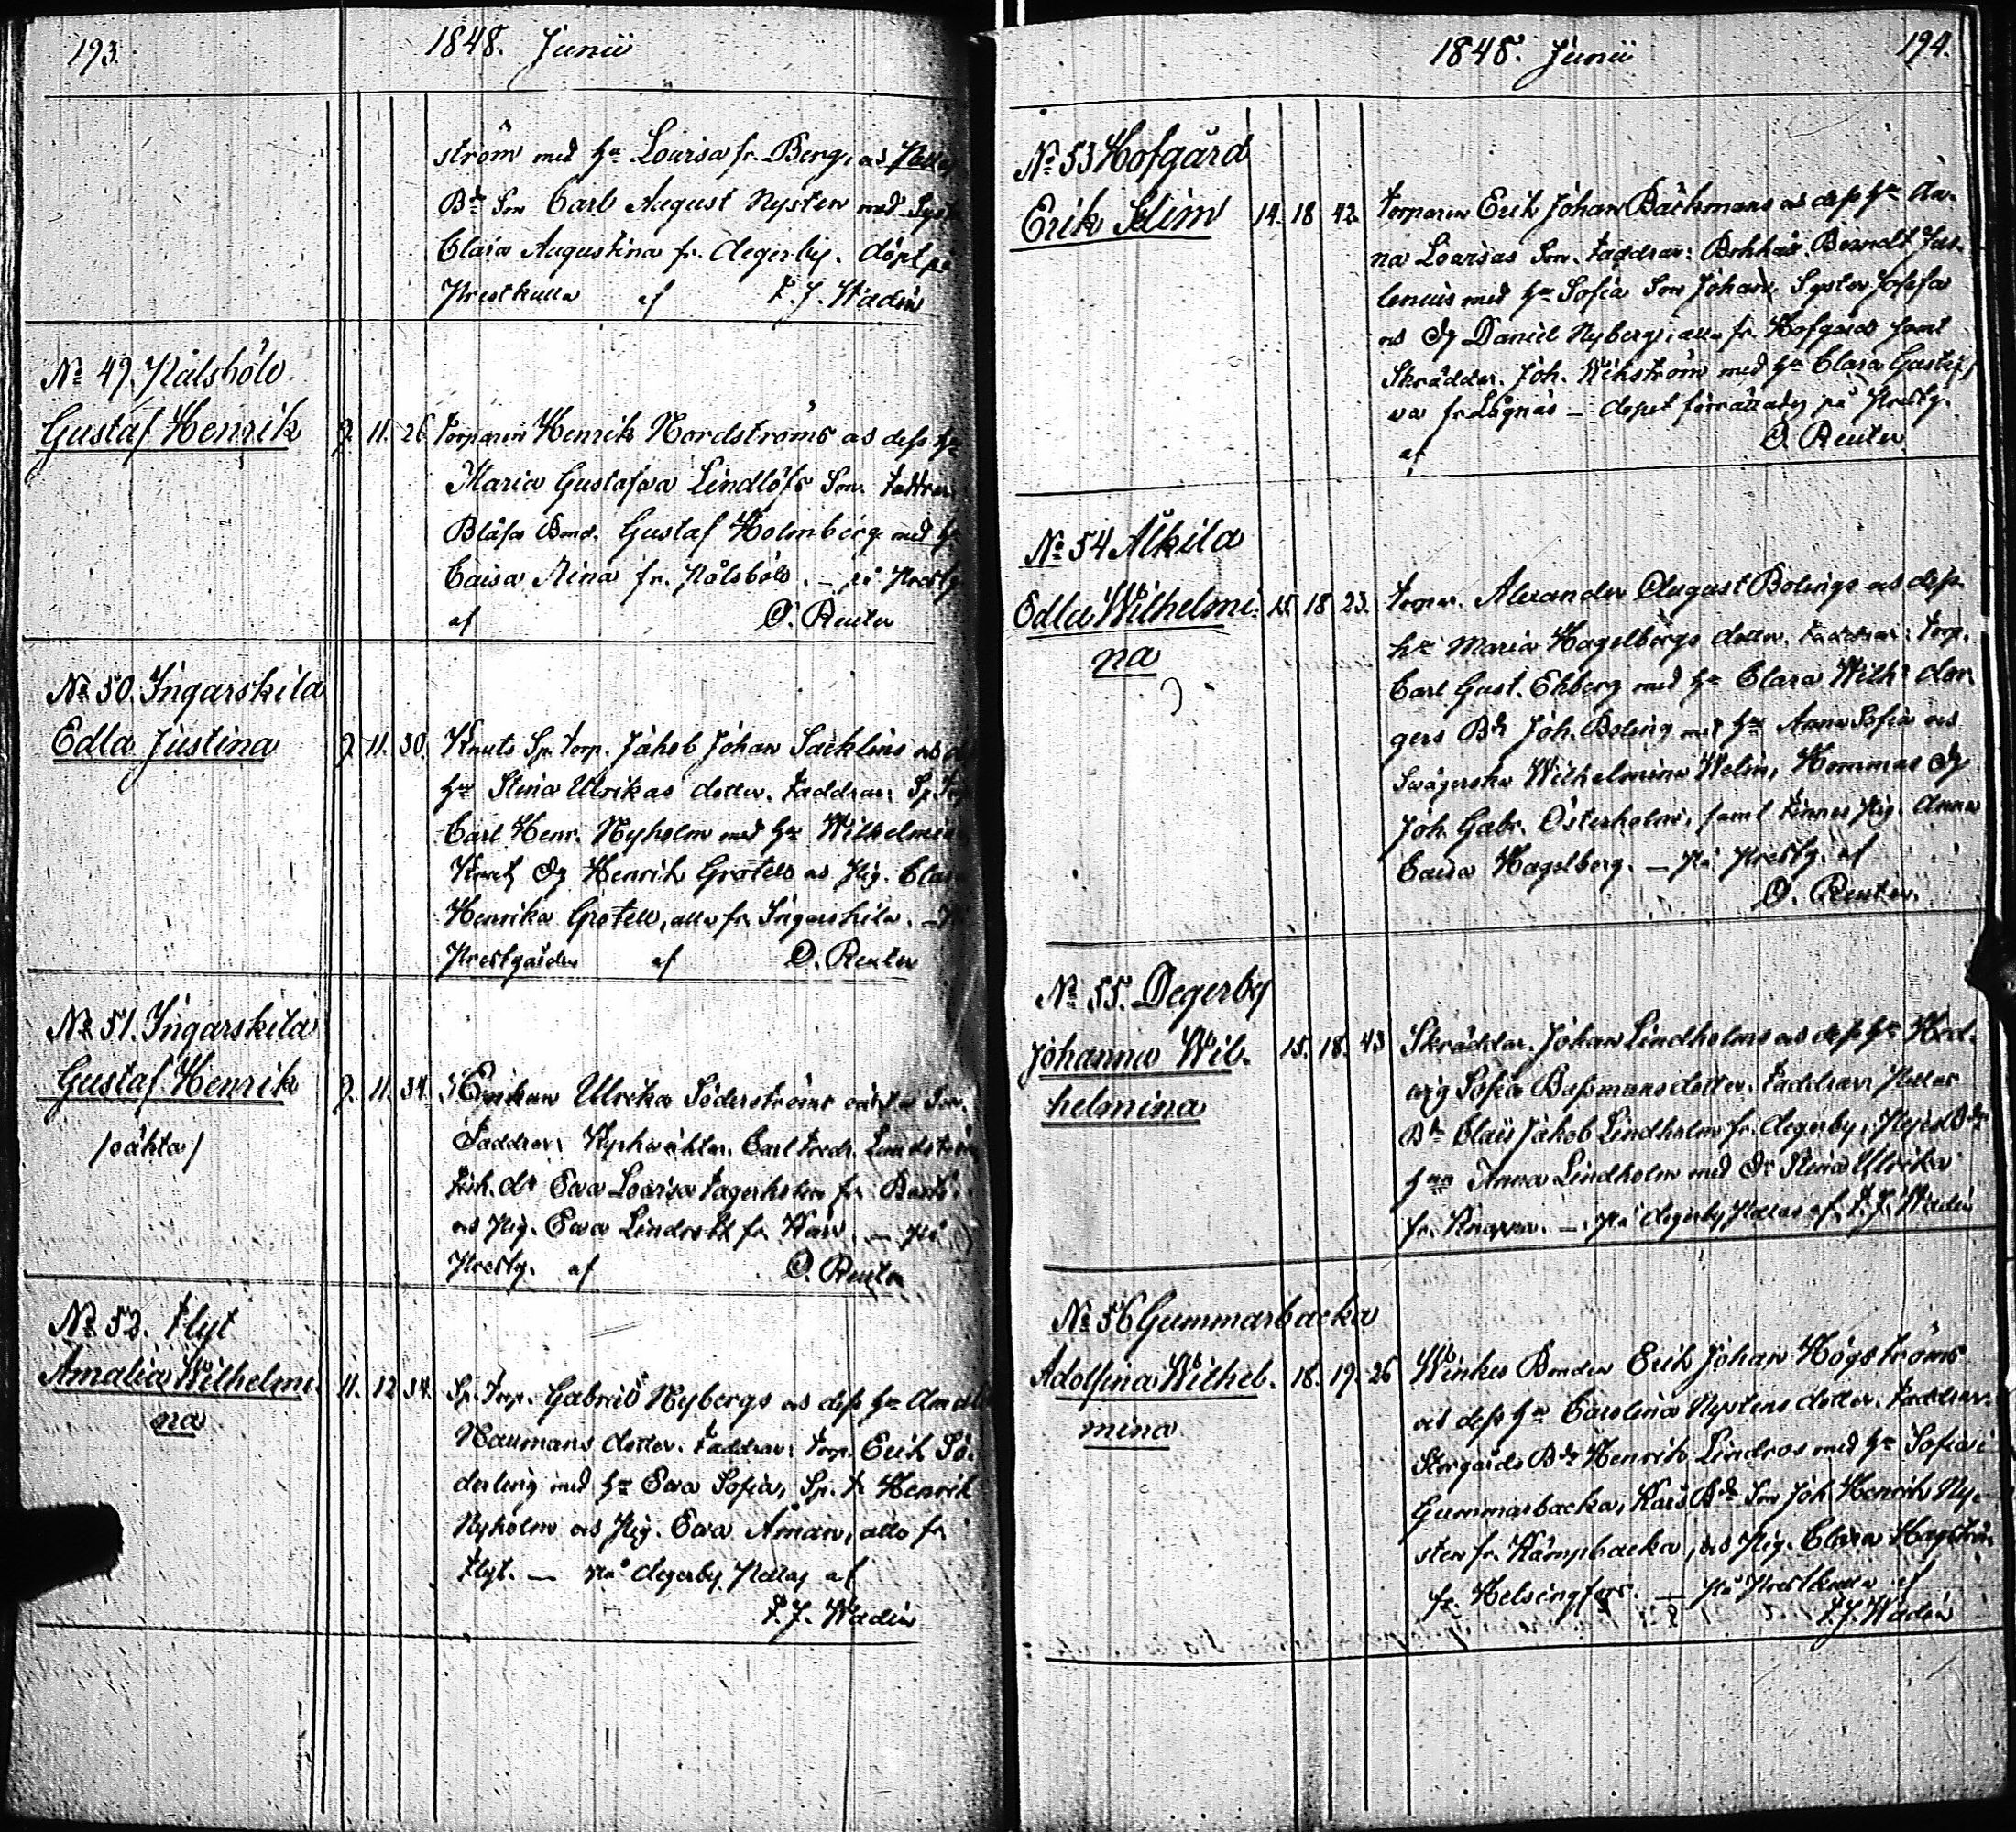 193.
1848. Junii
ström med hu Lovisa fr. Berg, as
Bd Son Carl August Nysten med
Clara Augustina fr. Degerby. döpt på
Prestkulla af F. J. Wadén
No 49. Pålsböle
Gustaf Henrik 9. 11. 26. Torparen Henrik Nordströms as dess hu
Maria Gustafva Lindlöfs Son. Faddrar:
Blåsa Bond. Gustaf Holmberg med hu
Caisa Stina fr. Pålsböle. – på Prestg.
af O. Reuter
No 50. Ingarskila
Edla Justina 9. 11. 30. Knuts Sp. Torp. Jakob Johan Säcklins as
hu Stina Ulrikas dotter. Faddrar: Sp. Torp
Carl Henr. Nyholm med hu Wilhelmina
Knuts Dg Henrik Grotell as Pig. Clara
Henrika Grotell, alla fr. Ingarskila. –
Prestgården af O. Reuter
No 51. Ingarskila
Gustaf Henrik 9. 11. 34. Enkan Ulrika Söderströms Son.
/oäkta/ Faddrar: Carl Fredr.
Eva Lovisa Fagerholm fr.
as Pig. Eva fr. – på
Prestg. af O. Reuter
No 52. Flyt
Amalia Wilhelmi- 11. 12. 34. Sp. Torp. Gabriel Nybergs as dess hu
na Naumans dotter. Faddrar: Torp. Erik Sö-
derling med hu Eva Sofia, Sp. T. Henrik
Nyholm as Pig. Eva Åman, alla fr
Flyt. – på Degerby Pellas af
F. J. Wadén
1848. Junii
194.
No 53 Hofgård
Erik Selim 14. 18. 42. Torparen Erik Johan Bäckmans as dess hu An-
na Lovisas Son. Faddrar: Berndt
med hu Sofia Son Johan, Syster Josefa
as Dg Daniel Nyberg, alla fr. Hofgård samt
Skräddar. Joh. Wikström med hu Clara Gustaf-
va fr. Lågnäs – dopet förrättades på Prestg.
af O. Reuter
No 54 Älkila
Edla Wilhelmi- 15. 18. 23. Torpar. Alexander August Bolings as dess
na hu Maria Hagelbergs dotter. Faddrar: Torp.
Carl Gust. Ekberg med hu Clara Wilh:
Bd Joh. Boling med hu Anna Sofia as
Swägerska Wilhelmina Welin, Hemmas Dg
Joh. Gabr. Österholm, samt Pig. Anna
Caisa Hagelberg. – På Prestg. af
O. Reuter.
No 55. Degerby
Johanna Wil- 15. 18. 43 Skräddar. Johan Lindholms as dess hu Hed-
helmina wig Sofia Bassmans dotter. Faddrar: Pellas
Bd Jakob Lindholm fr. Degerby,
hu Anna Lindholm med Dr Stina Ulrika
fr. Knapsa. – På Degerby Pellas af F. J. Wadén
No 56 Gummarbacka
Adolfina Wilhel- 18. 19. 26 Winkes Bonden Erik Johan Högströms
mina as dess hu Carolina Nystens dotter. Faddrar:
Storgårds Bd Henrik Lindroos med hu Sofia i
Gummarbacka, Kars Bd Son Joh. Henrik Ny-
sten fr. Kämpbacka, as Pig. Clara
fr. Helsingfors. – På Prestkulla af
F. J. Wadén